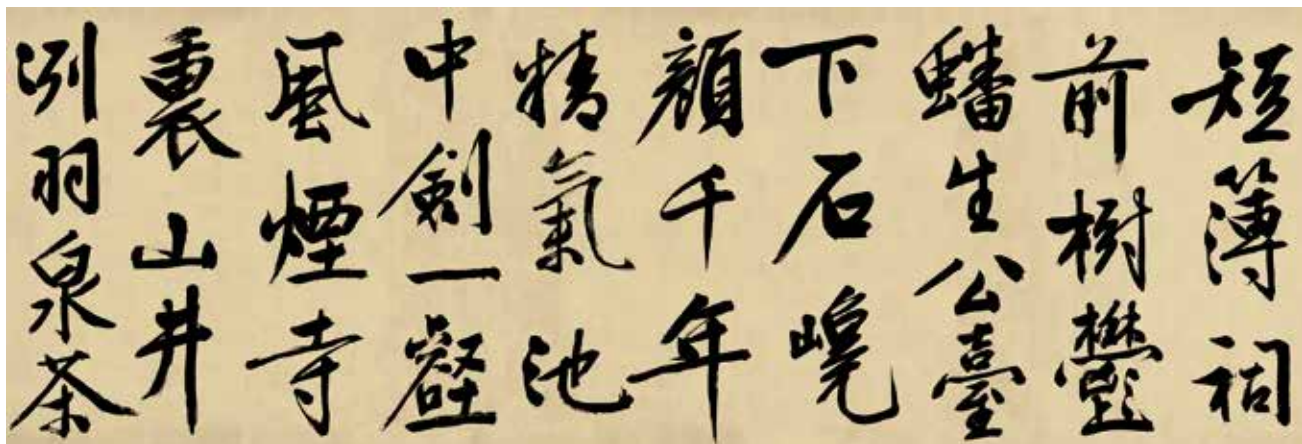 短簿祠
前樹鬱
蟠生公臺
下石巉
顏千年
精氣池
中劍一壑
風煙寺
裏山井
冽羽泉茶